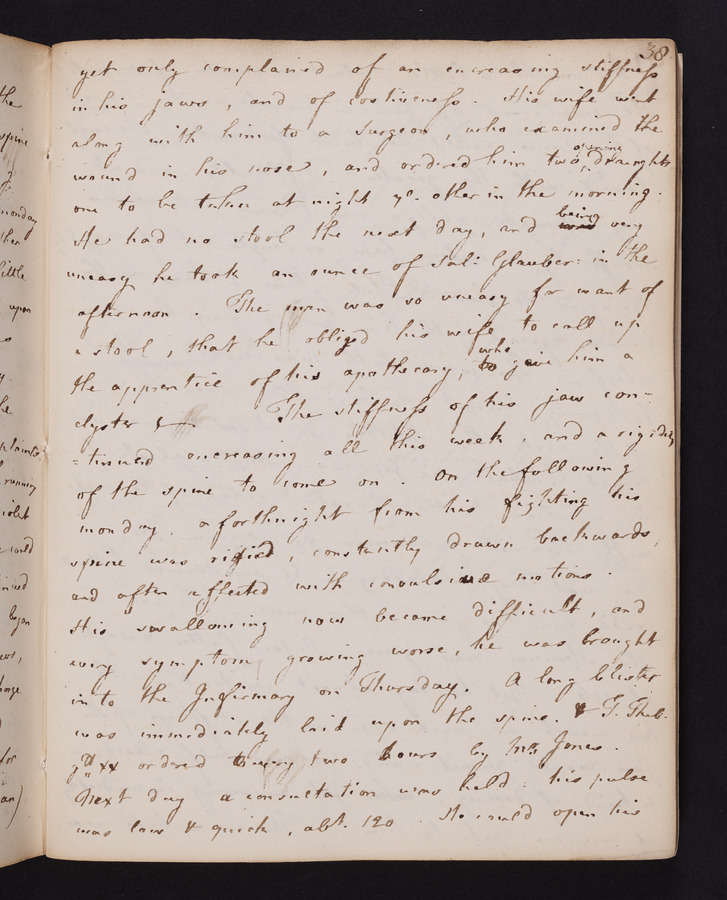 38
yet only complained of an encreasing stiffness
in his jaws, and of costiveness. His wife went
along with him to a surgeon, who examined the
wound in his nose, and ordered him two opening draughts
one to be taken at night ye. other in the morning.
He had no stool the next day, and being very
uneasy he took an ounce of Sal: Glauber: in the
afternoon. The man was so uneasy for want of
a stool, that he obliged his wife to call up
the apprentice of his apothecary, who to gave him a
clyster &
The stiffness of his jaw con-
=tinued encreasing all this week, and a rigidity
of the spine to come on. On the following
monday, a forthnight from his fighting his
spine was rigid, constantly drawn backwards,
and often affected with convulsive motions.
His swallowing now became difficult, and
every symptom growing worse, he was brought
in to the Infirmary on Thursday. A long blister
was immediately laid upon the spine. & T. Theb.
gtt xx ordered every two hours by Mr. Jones.
Next day a consultation was held: his pulse
was low & quick, abt. 120. He could open his